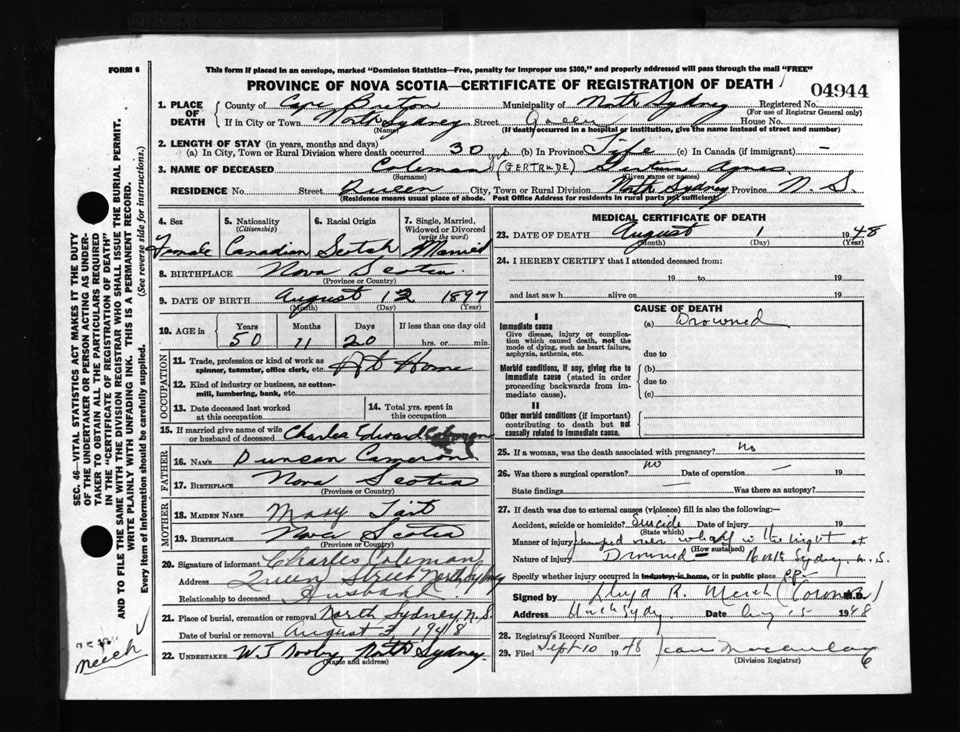 FORM 6
This form if placed in an envelope, marked "Dominion Statistics—Free, penalty for improper use $300," and properly addressed will pass through the mail "FREE"
PROVINCE OF NOVA SCOTIA—CERTIFICATE OF REGISTRATION OF DEATH
04944
1. PLACE OF DEATH
County of Cape Breton Municipality of North Sydney Registered No.
(For use of Registrar General only)
If in City or Town North Sydney Street Queen House No.
(Name) (If death occurred in a hospital or institution, give the name instead of street and number)
2. LENGTH OF STAY (in years, months and days)
(a) In City, Town or Rural Division where death occurred 30 yrs (b) In Province Life (c) In Canada (if immigrant) —
3. NAME OF DECEASED Coleman (GERTRUDE) Agnes
(Surname) (Given name or names)
RESIDENCE No. Street Queen City, Town or Rural Division North Sydney Province N. S.
(Residence means usual place of abode. Post Office Address for residents in rural parts not sufficient)
4. Sex Female
5. Nationality (Citizenship) Canadian
6. Racial Origin Scotch
7. Single, Married, Widowed or Divorced (write the word) Married
8. BIRTHPLACE Nova Scotia
(Province or Country)
9. DATE OF BIRTH August 12 1897
(Month) (Day) (Year)
10. AGE in Years 50 Months 11 Days 20 If less than one day old hrs. or min.
OCCUPATION
11. Trade, profession or kind of work as spinner, teamster, office clerk, etc. At Home
12. Kind of industry or business, as cotton-mill, lumbering, bank, etc.
13. Date deceased last worked at this occupation
14. Total yrs. spent in this occupation
15. If married give name of wife or husband of deceased Charles Edward Coleman
FATHER
16. NAME Duncan Cameron
17. BIRTHPLACE Nova Scotia
(Province or Country)
MOTHER
18. MAIDEN NAME Mary Tait
19. BIRTHPLACE Nova Scotia
(Province or Country)
20. Signature of informant Charles Coleman
Address Queen Street North Sydney
Relationship to deceased Husband
21. Place of burial, cremation or removal North Sydney N.S.
Date of burial or removal August 3 1948
22. UNDERTAKER W J Dooley North Sydney.
(Name and address)
MEDICAL CERTIFICATE OF DEATH
23. DATE OF DEATH August 1 1948
(Month) (Day) (Year)
24. I HEREBY CERTIFY that I attended deceased from:
19 to 19
and last saw h alive on 19
CAUSE OF DEATH
I
Immediate cause
Give disease, injury or complication which caused death, not the mode of dying, such as heart failure, asphyxia, asthenia, etc.
(a) Drowned
due to
Morbid conditions, if any, giving rise to immediate cause (stated in order proceeding backwards from immediate cause).
(b)
due to
(c)
II
Other morbid conditions (if important) contributing to death but not causally related to immediate cause.
25. If a woman, was the death associated with pregnancy? no
26. Was there a surgical operation? no Date of operation — 19
State findings — Was there an autopsy?
27. If death was due to external causes (violence) fill in also the following:—
Accident, suicide or homicide? Suicide Date of injury 19
(State which)
Manner of injury jumped over wharf in the night at
(How sustained)
Nature of injury Drowned — North Sydney. N.S.
Specify whether injury occurred in industry, in home, or in public place p.p.
Signed by Lloyd R. Meech (Coroner)
Address North Sydney Date Aug 15 1948
28. Registrar's Record Number
29. Filed Sept 10 1948
(Division Registrar)
SEC. 46—VITAL STATISTICS ACT MAKES IT THE DUTY OF THE UNDERTAKER OR PERSON ACTING AS UNDERTAKER TO OBTAIN ALL THE PARTICULARS REQUIRED IN THE "CERTIFICATE OF REGISTRATION OF DEATH" AND TO FILE THE SAME WITH THE DIVISION REGISTRAR WHO SHALL ISSUE THE BURIAL PERMIT.
WRITE PLAINLY WITH UNFADING INK. THIS IS A PERMANENT RECORD.
Every item of information should be carefully supplied. (See reverse side for instructions.)
meech